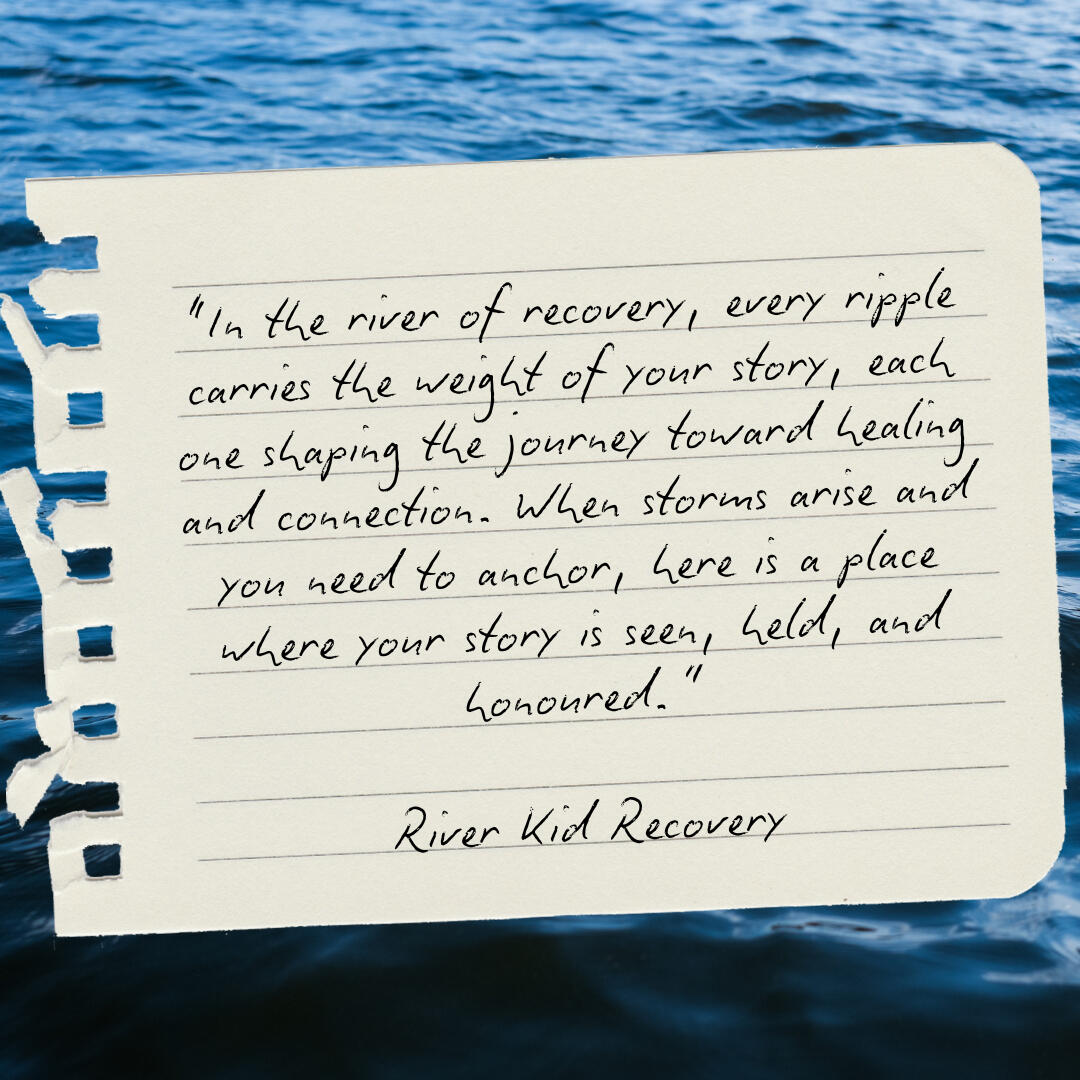 "In the river of recovery, every ripple
carries the weight of your story, each
one shaping the journey toward healing
and connection. When storms arise and
you need to anchor, here is a place
where your story is seen, held, and
honoured."
River Kid Recovery